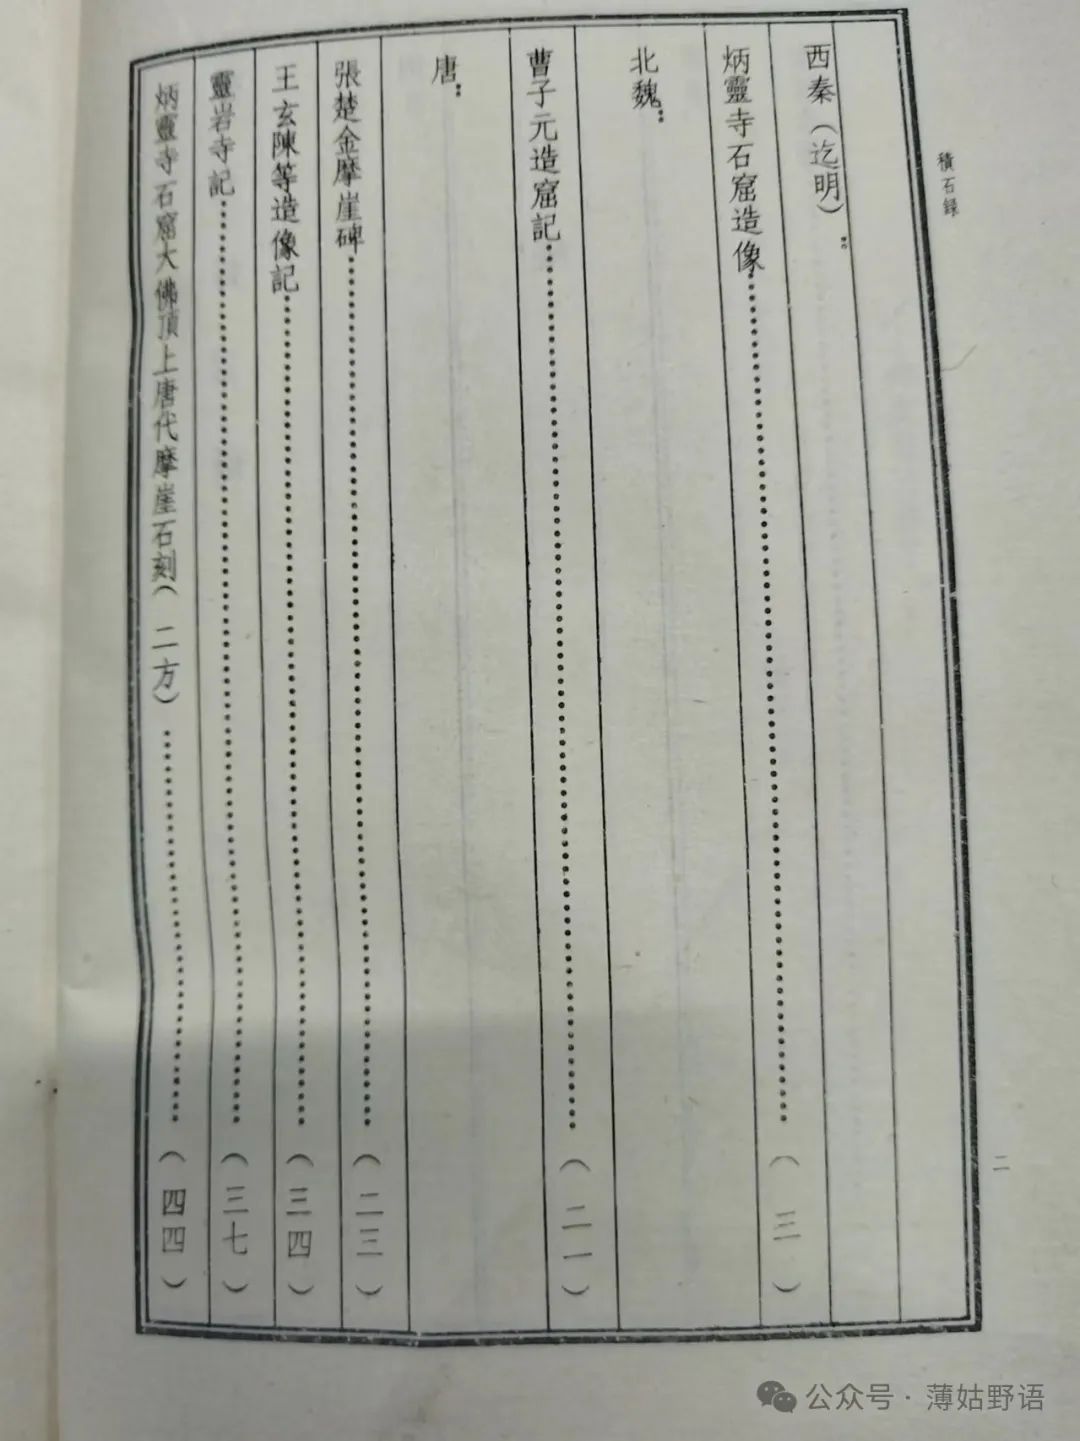 積石録
二
西秦（迄明）：
炳靈寺石窟造像……（三）
北魏：
曹子元造窟記……（二一）
唐：
張楚金摩崖碑……（二三）
王玄陳等造像記……（三四）
靈岩寺記……（三七）
炳靈寺石窟大佛頂上唐代摩崖石刻（二方）……（四四）
公众号·薄姑野语